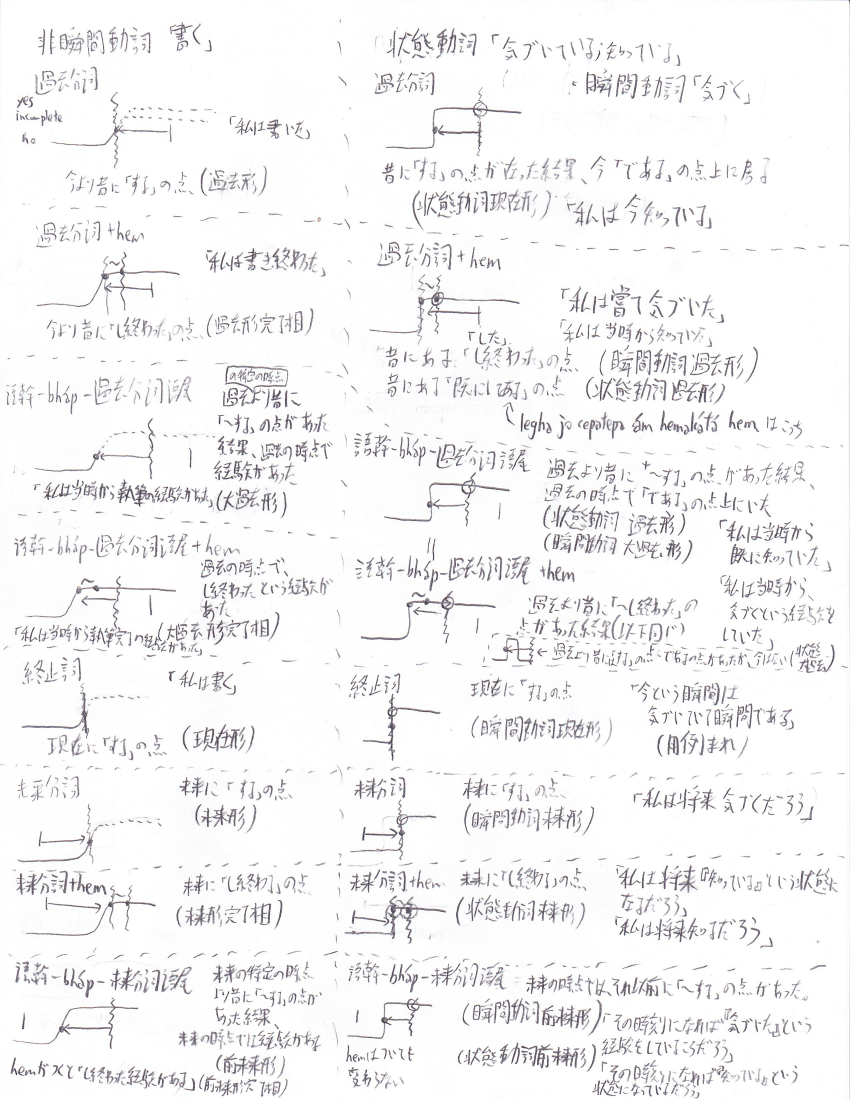 非瞬間動詞「書く」
過去分詞
yes
incomplete
no
「私は書いた」
今より昔に「する」の点 (過去形)
過去分詞+hem
「私は書き終わった」
今より昔に「し終わった」の点 (過去形完了相)
語幹-bháp-過去分詞語尾
の特定の時点
過去より昔に
「〜する」の点があった
結果、過去の時点で
経験があった
「私は当時から執筆の経験があった」(大過去形)
語幹-bháp-過去分詞語尾+hem
過去の時点で、
し終わったという経験が
あった
「私は当時から執筆完了の経験があった」(大過去形完了相)
終止詞
「私は書く」
現在に「する」の点 (現在形)
未来分詞
未来に「する」の点
(未来形)
未来分詞+hem
未来に「し終わる」の点
(未来形完了相)
語幹-bháp-未来分詞語尾
未来の特定の時点
より昔に「〜する」の点が
あった結果、
未来の時点では経験がある
(前未来形)
hemがつくと「し終わった経験がある」(前未来形完了相)
状態動詞「気づいている;知っている」
瞬間動詞「気づく」
過去分詞
昔に「する」の点が在った結果、今「である」の点上に居る
(状態動詞現在形)「私は今知っている」
過去分詞+hem
「私は嘗て気づいた」
「私は当時から知っていた」
「した」
昔にある「し終わった」の点 (瞬間動詞過去形)
昔にある「既にしてある」の点 (状態動詞過去形)
legha jo cepatepa ám hemakátá hem はこっち
語幹-bháp-過去分詞語尾
過去より昔に「〜する」の点があった結果、
過去の時点で「である」の点上にいた
(状態動詞 過去形)
(瞬間動詞 大過去形)
「私は当時から
既に知っていた」
語幹-bháp-過去分詞語尾+hem
過去より昔に「〜し終わった」の
点があった結果(以下同じ)
「私は当時から、
気づくという経験を
していた」
←過去より昔に「する」の点、「である」の点があったが、今はない(状態大過去)
終止詞
現在に「する」の点
(瞬間動詞現在形)
「今という瞬間は
気づいていて瞬間である」
(用例まれ)
未来分詞
未来に「する」の点
(瞬間動詞未来形)
「私は将来 気づくだろう」
未来分詞+hem
未来に「し終わる」の点
(状態動詞未来形)
「私は将来『知っている』という状態に
なるだろう」
「私は将来知るだろう」
語幹-bháp-未来分詞語尾
未来の時点では、それ以前に「〜する」の点があった。
(瞬間動詞前未来形)
「その時刻になれば『気づいた』という
経験をしているころだろう」
(状態動詞前未来形)
「その時刻になれば『知っている』という
状態になっているだろう」
hemはついても
変わらない